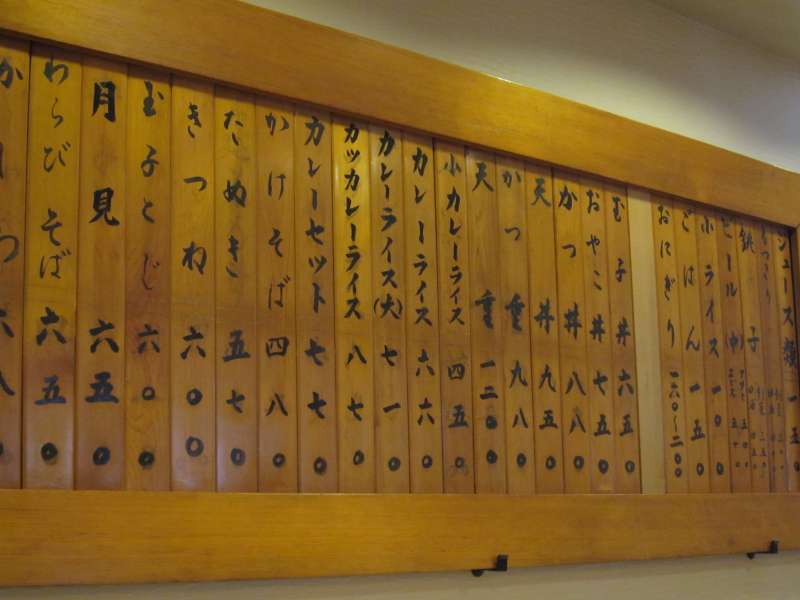 ュース類 一五〇
銚子
ビール(中)
小ライス 一〇〇
ごはん 一五〇
おにぎり 一六〇〜二〇〇
玉子丼 六五〇
おやこ丼 七五〇
かつ丼 八八〇
天丼 九五〇
かつ重 九八〇
天重 一二〇〇
小カレーライス 四五〇
カレーライス 六六〇
カレーライス(大) 七一〇
カツカレーライス 八七〇
カレーセット 七七〇
かけそば 四八〇
たぬき 五七〇
きつね 六〇〇
玉子とじ 六〇〇
月見 六五〇
わらびそば 六五〇
六八〇